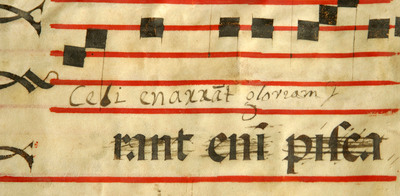 Celi enarrāt gloriam
rant eni̅ piſca